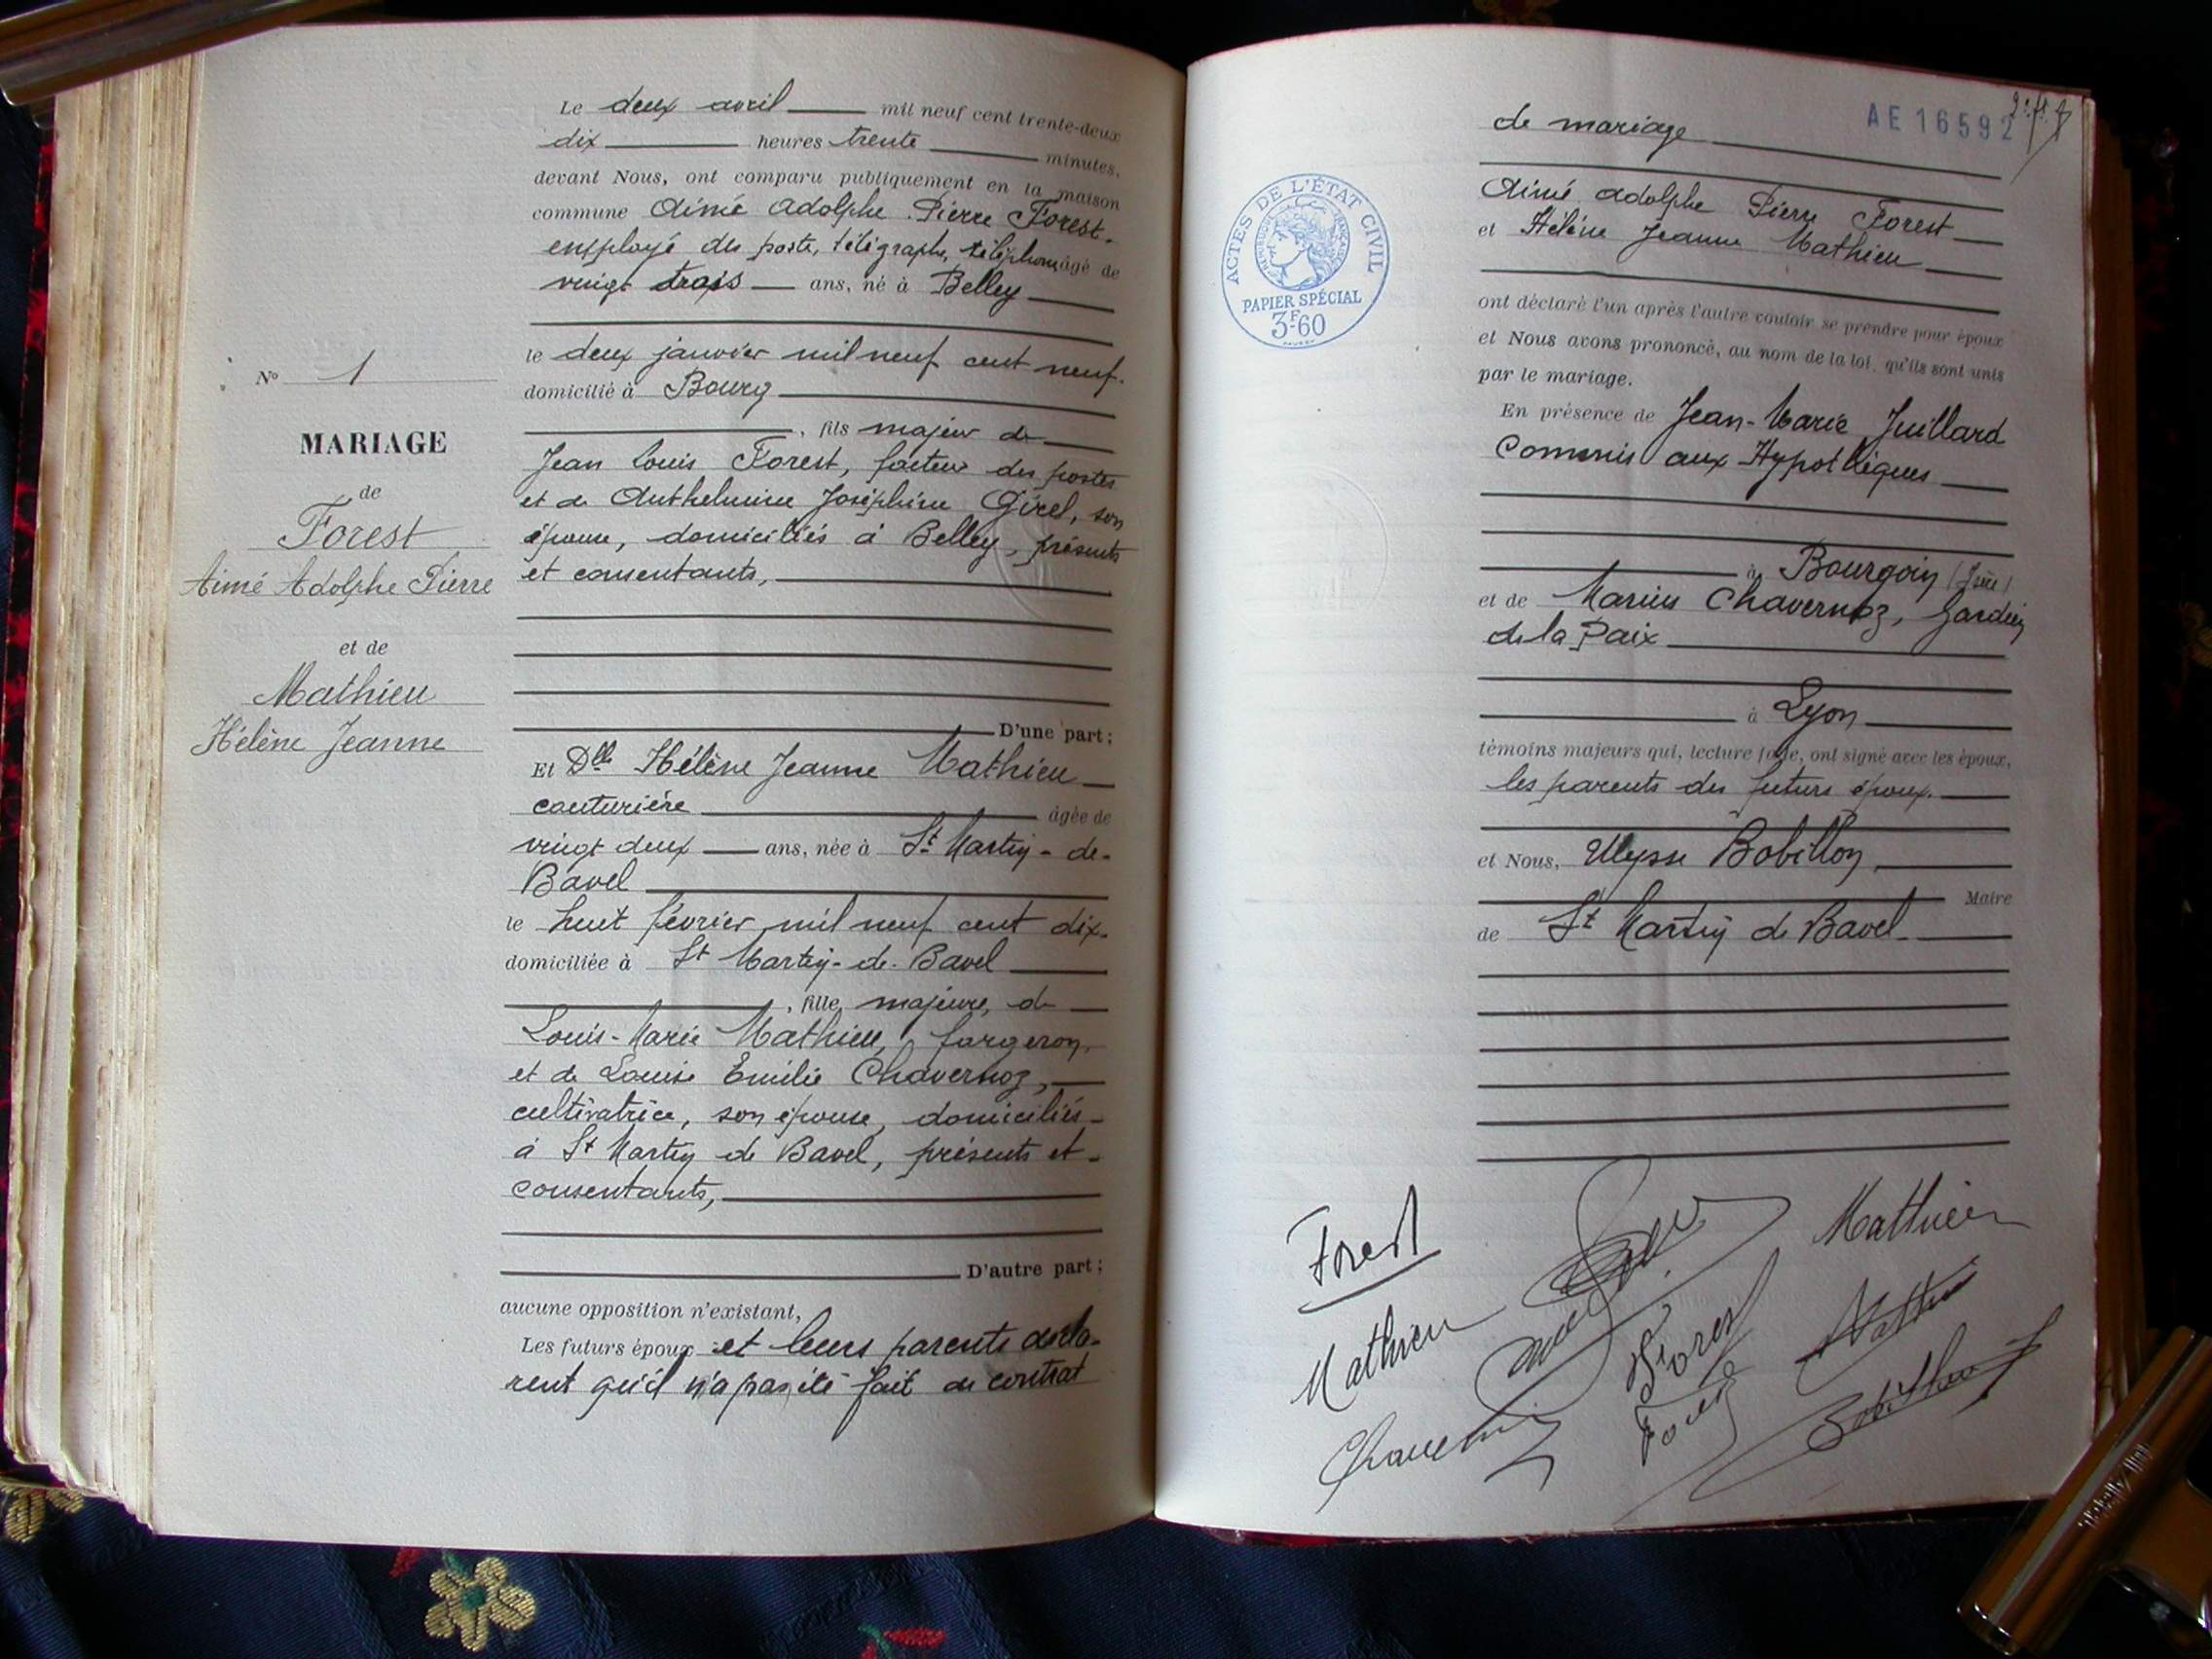 Le deux avril mil neuf cent trente-deux
dix heures trente minutes,
devant Nous, ont comparu publiquement en la maison
commune Aimé Adolphe Pierre Forest,
employé des postes, télégraphe, téléphone âgé de
vingt trois ans, né à Belley
le deux janvier mil neuf cent neuf.
domicilié à Bourg
, fils majeur de
Jean Louis Forest, facteur des postes
et de Anthelmine Joséphine Girel, son
épouse, domiciliés à Belley, présents
et consentants,
D'une part ;
Nº 1
MARIAGE
de
Forest
Aimé Adolphe Pierre
et de
Mathieu
Hélène Jeanne
Et Dlle Hélène Jeanne Mathieu
couturière âgée de
vingt deux ans, née à St Martin-de-
Bavel
le huit février mil neuf cent dix.
domiciliée à St Martin-de-Bavel
, fille majeure, de
Louis-Marie Mathieu, forgeron,
et de Louise Emilie Chavernoz,
cultivatrice, son épouse, domiciliés
à St Martin de Bavel, présents et
consentants,
D'autre part ;
aucune opposition n'existant,
Les futurs époux et leurs parents décla-
rent qu'il n'a pas été fait de contrat
AE 16592
de mariage
Aimé Adolphe Pierre Forest
et Hélène Jeanne Mathieu
ont déclaré l'un après l'autre vouloir se prendre pour époux
et Nous avons prononcé, au nom de la loi, qu'ils sont unis
par le mariage.
ACTES DE L'ÉTAT CIVIL
RÉPUBLIQUE FRANÇAISE
PAPIER SPÉCIAL
3F60
En présence de Jean-Marie Juillard
Commis aux Hypothèques
à Bourgoin (Isère)
et de Marius Chavernoz, Gardien
de la Paix
à Lyon
témoins majeurs qui, lecture faite, ont signé avec les époux,
les parents des futurs époux.
et Nous, Ulysse Bobillon,
Maire
de St Martin de Bavel
Forest
Mathieu
Mathieu
Forest
Mathieu
Bobillon